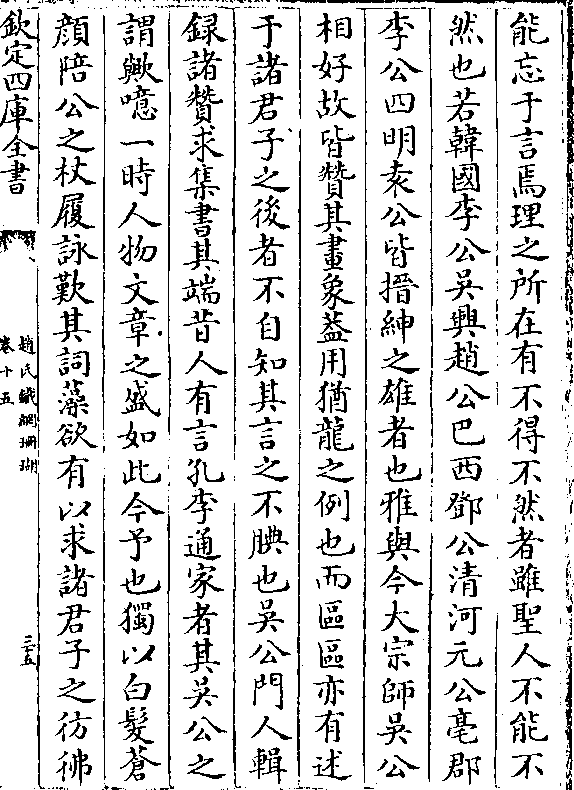 能忘于言焉理之所在有不得不然者雖聖人不能不
然也若韓國李公吳興趙公巴西鄧公清河元公亳郡
李公四明袁公皆搢紳之雄者也雅與今大宗師吳公
相好故皆贊其畫象葢用猶龍之例也而區區亦有述
于諸君子之後者不自知其言之不腆也吳公門人輯
録諸贊求集書其端昔人有言孔李通家者其吳公之
謂歟噫一時人物文章之盛如此今予也獨以白髪蒼
顔陪公之杖履詠歎其詞藻欲有以求諸君子之彷彿
欽定四庫全書
趙氏鐵網珊瑚
卷十五
三五